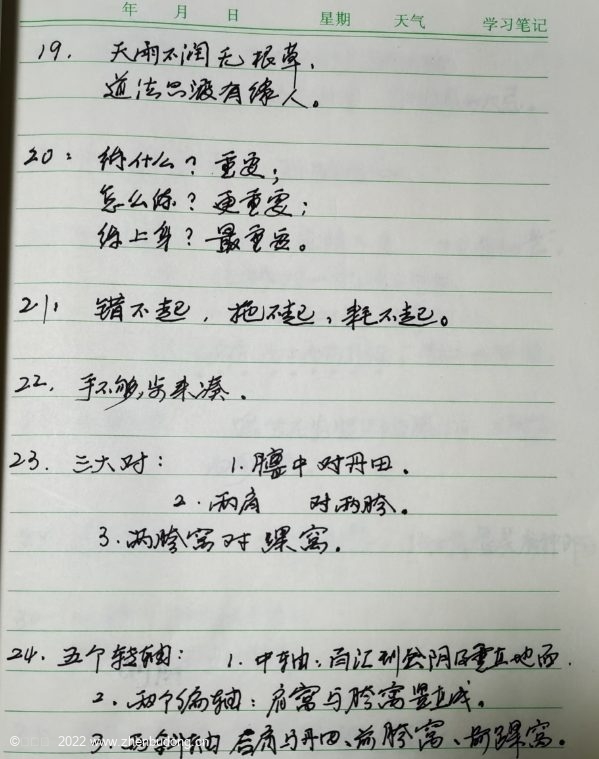 年 月 日 星期 天气 学习笔记
19. 天雨不润无根草,
道法只渡有缘人。
20: 练什么?重要;
怎么练?更重要;
练上身?最重要。
21: 错不起,拖不起,耗不起。
22. 手不够,步来凑.
23. 三大对: 1. 膻中对丹田.
2. 两肩 对两胯。
3. 两胯窝对踝窝.
24. 五个转轴: 1. 中轴:百汇到会阴后垂直地面.
2. 两个偏轴:肩窝与胯窝竖直成。
3. 两斜轴 后肩与丹田、前胯窝、前踝窝。
© 2022 www.zhenbudong.cn